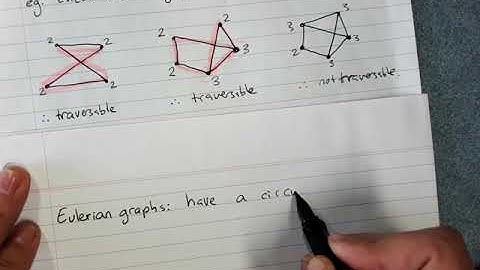 eg.
2 2 2 3
3 3
2 3
2 2 2 3 3 3
∴ traversable ∴ traversable ∴ not traversable.
Eulerian graphs: have a circu